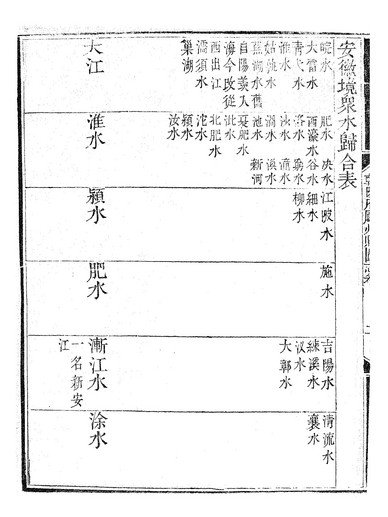 安徽境衆水歸合表
皖水
大雷水
青弋水
淮水
姑孰水
蕪湖水舊
自陽羨入
海今改從
西出江
濡須水
巢湖
大江
肥水 決水
西濠水 谷水
洛水
渦水 溪水
池水 新河
夏肥水
沘水
北肥水
沱水
潁水
汝水
淮水
江陂水
細水
柳水
潁水
施水
肥水
吉陽水
練溪水
汊水
大鄣水
漸江水
一名新安
江
清流水
襄水
涂水